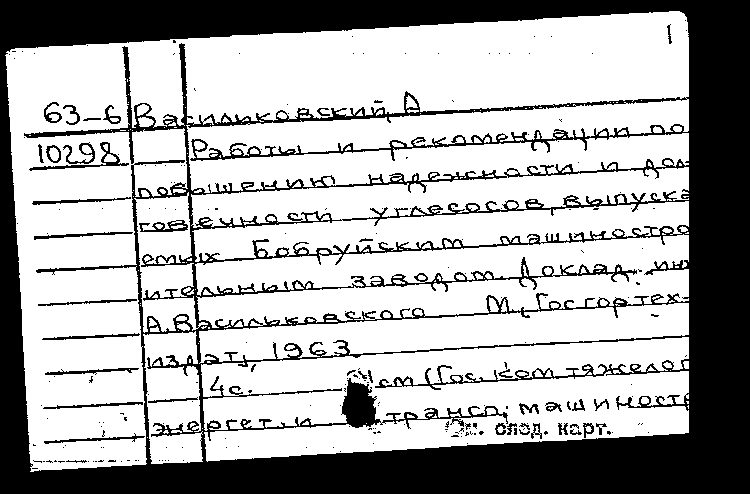 1
63-6 Васильковский, А
10298 Работы и рекомендации по
повышению надежности и дол-
говечности углесосов, выпуска
емых Бобруйским машиностро
ительным заводом. Доклад инж
А. Васильковского М., Госгортех-
издат, 1963.
4с. см (Гос. ком тяжелог
энергет. и трансп. машиностр
См. след. карт.